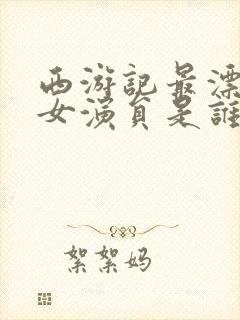 西游記最漂
女演員是誰
絮絮妈